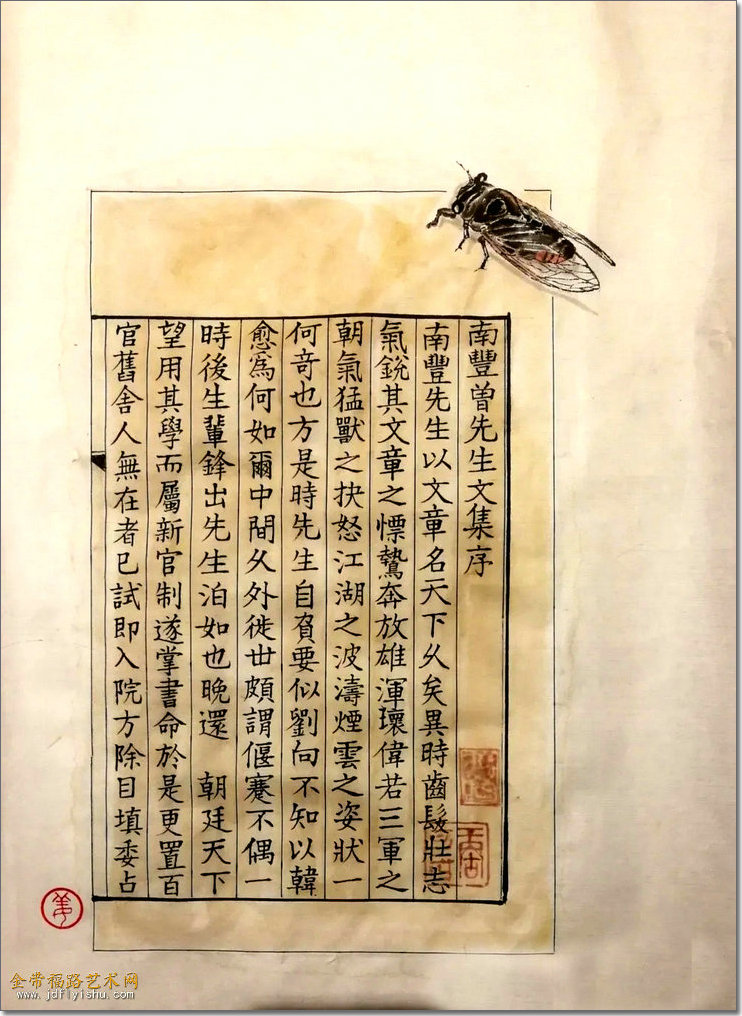 南豐曾先生文集序
南豐先生以文章名天下久矣異時齒髮壯志
氣銳其文章之慓鷙奔放雄渾瓌偉若三軍之
朝氣猛獸之抉怒江湖之波濤煙雲之姿狀一
何奇也方是時先生自負要似劉向不知以韓
愈爲何如爾中間久外徙世頗謂偃蹇不偶一
時後生輩鋒出先生泊如也晚還 朝廷天下
望用其學而屬新官制遂掌書命於是更置百
官舊舍人無在者已試即入院方除目填委占
姜
金带福路艺术网
www.jdflyishu.com